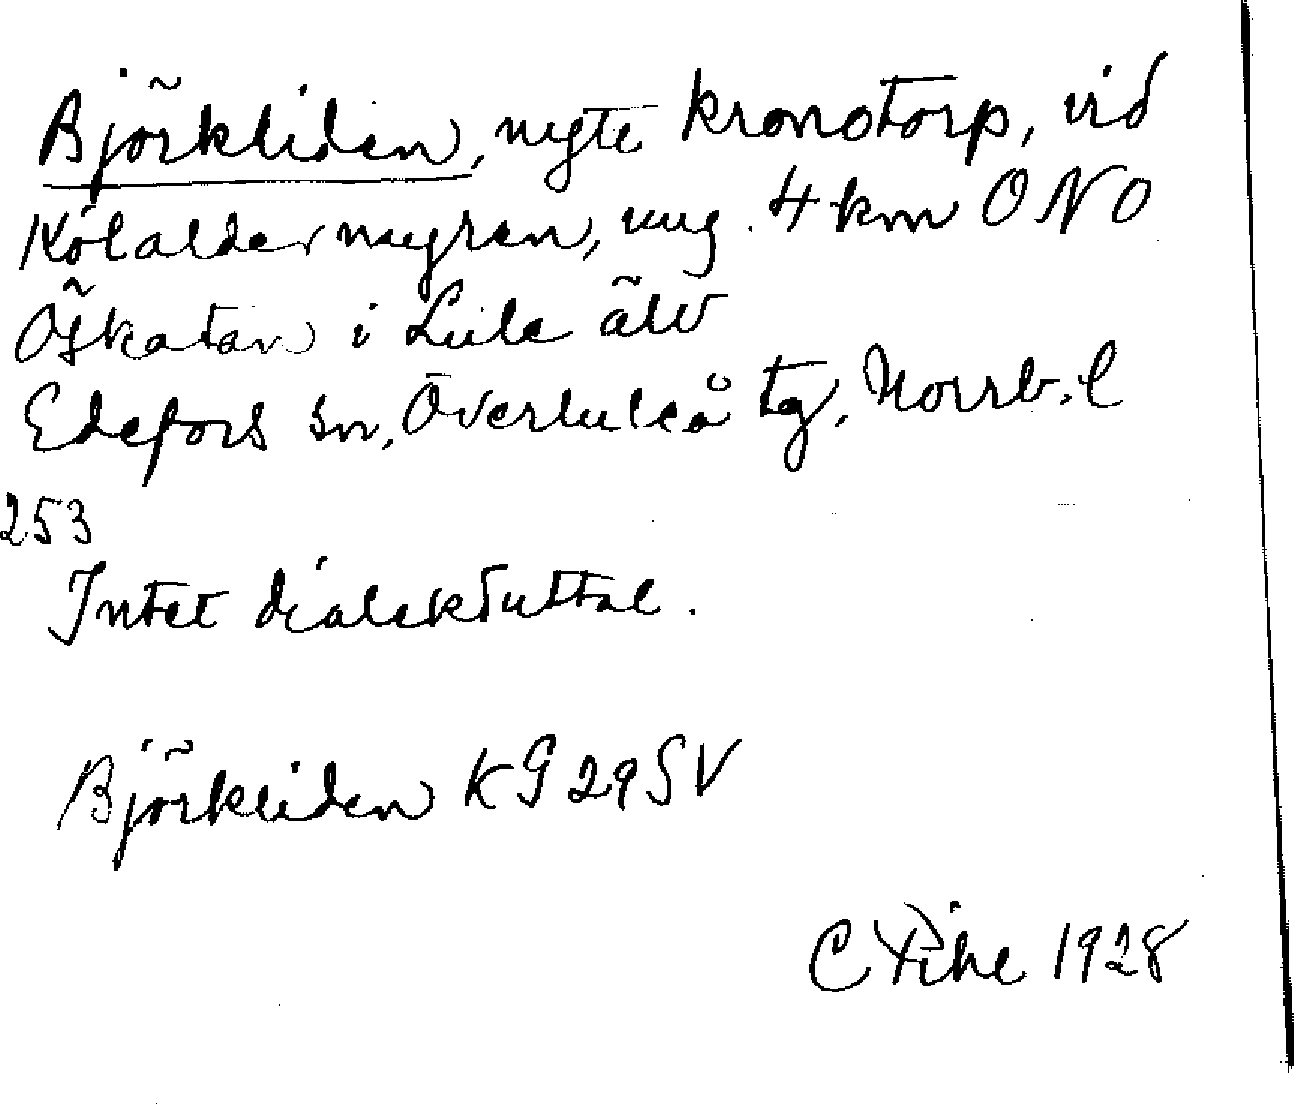 Björkliden, nyte kronotorp, vid
Kölaldermyran, ung. 4 km ONO
Öskatan i Lule älv
Edefors sn, Överluleå tg, Norrb. l
253
Intet dialektuttal.
Björkliden KG 29 SV
C 1928